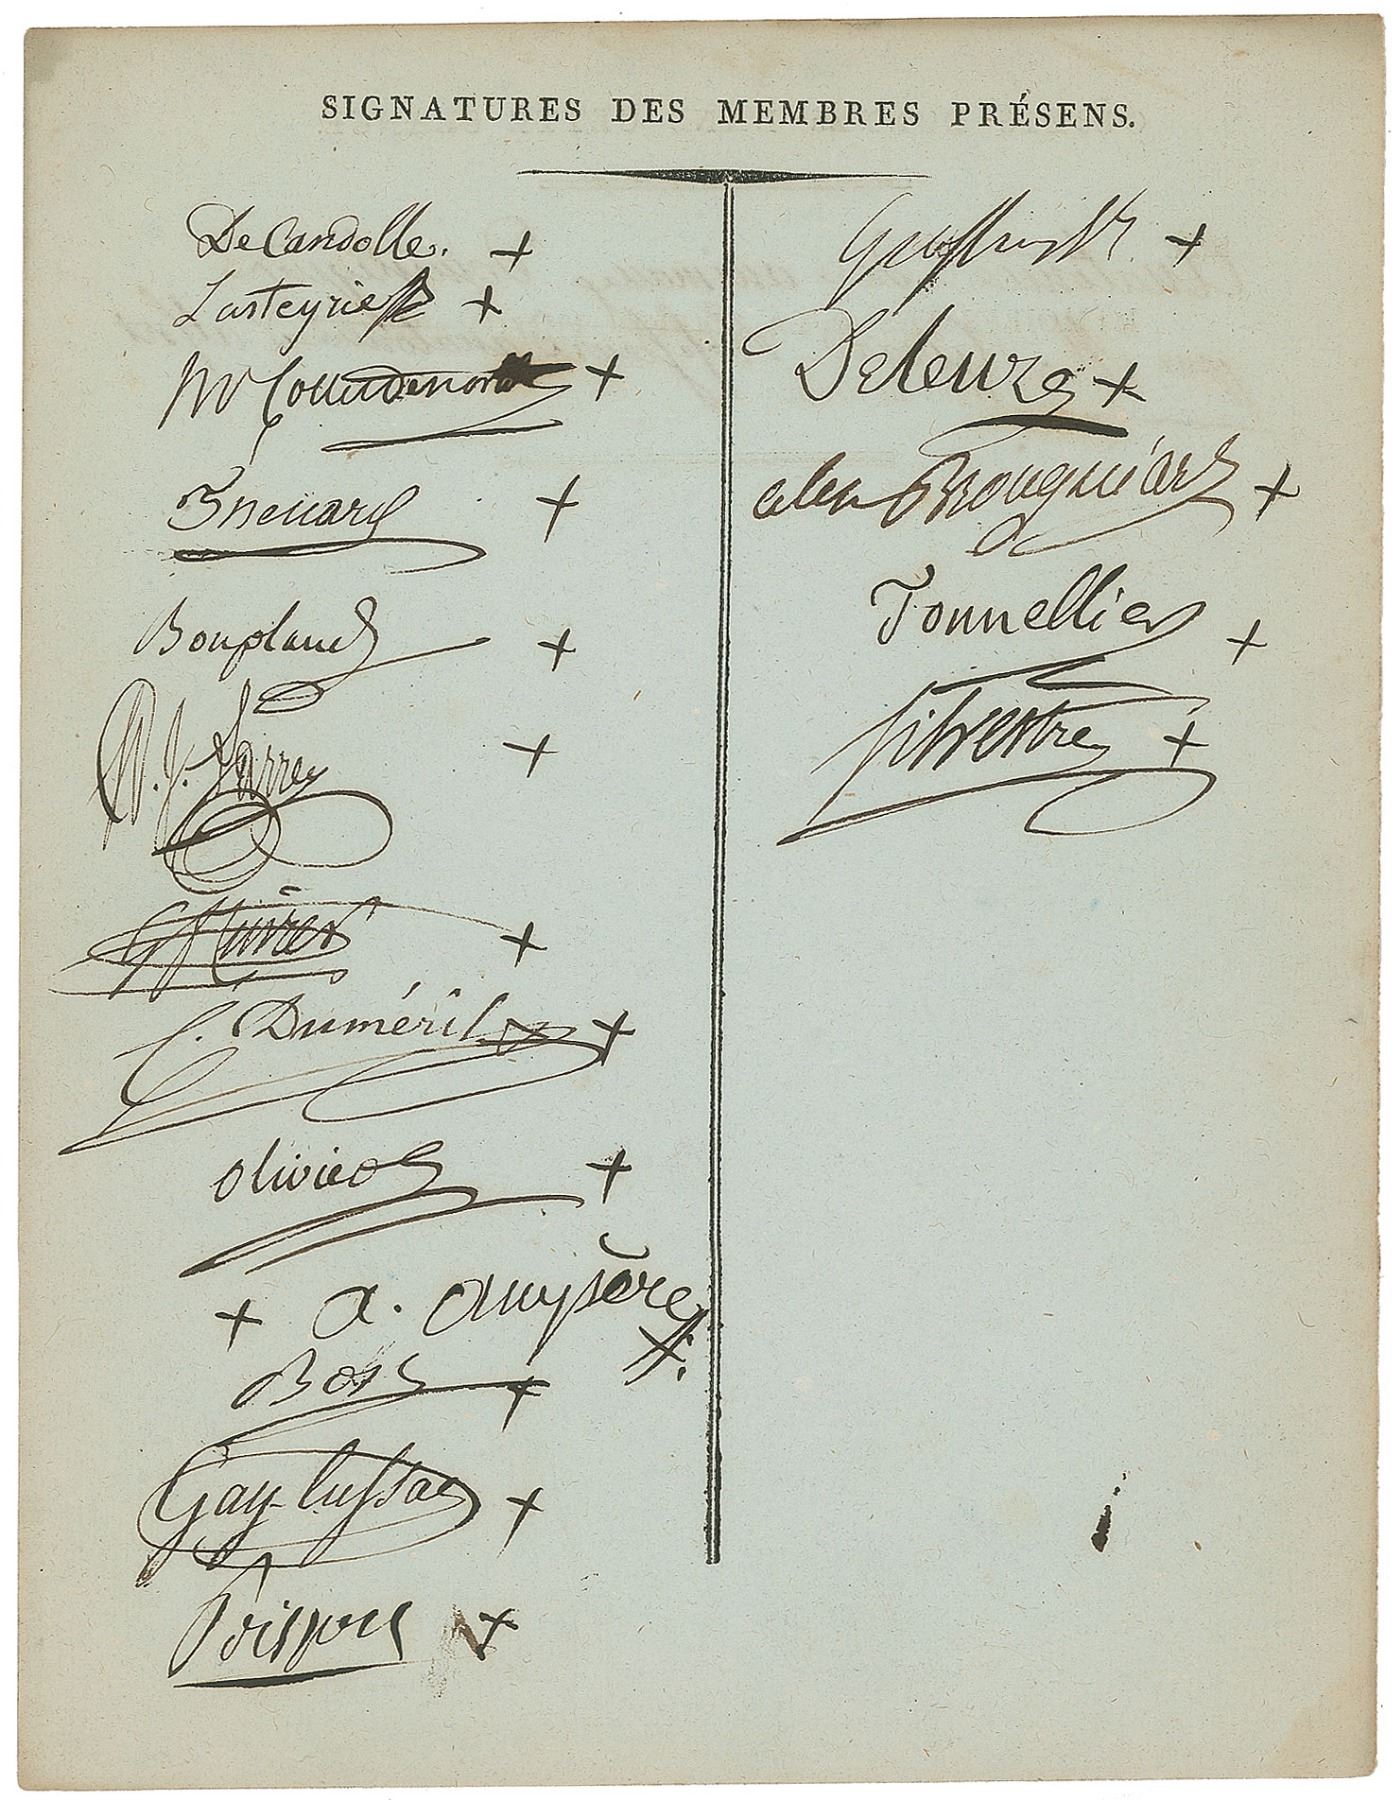 SIGNATURES DES MEMBRES PRÉSENS.
DeCandolle. +
Lasteyrie +
+
Thenard +
Bonpland +
D. J. Larrey +
Cuvier +
C. Duméril +
olivier +
+ a. ampère
Bosc +
Gay-lussac +
Poisson +
Geoffroy St h +
Deleuze +
alex Brongniart +
Tonnellier +
Silvestre +